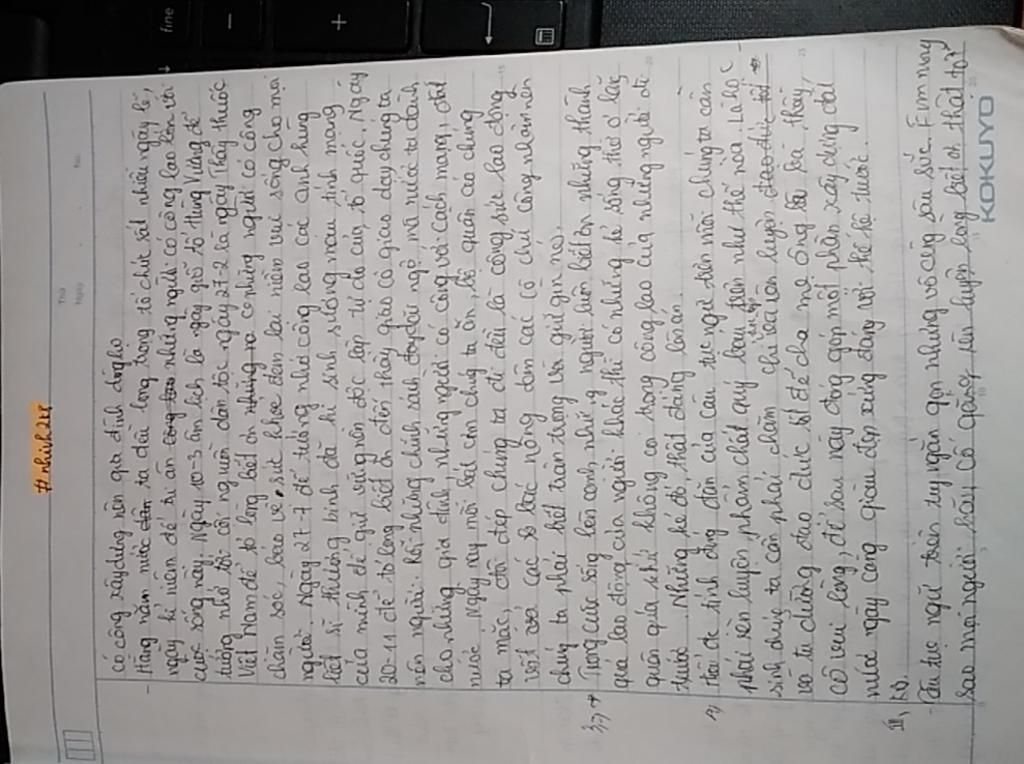 #nhinh24
có công xây dựng nên gia đình dòng họ
- Hằng năm nước dân ta đều long trọng tổ chức rất nhiều ngày lễ,
ngày kỉ niệm để tri ân công lao những người có công lao lớn với
cuộc sống này. Ngày 10-3 âm lịch là ngày giỗ tổ Hùng Vương để
tưởng nhớ tới cội nguồn dân tộc ngày 27-2 là ngày Thầy thuốc
Việt Nam để tỏ lòng biết ơn những những người có công
chăm sóc, bảo vệ sức khỏe đem lại niềm vui sống cho mọi
người. Ngày 27-7 để tưởng nhớ công lao các anh hùng
liệt sĩ thương binh đã hi sinh xương máu tính mạng
của mình để giữ vững nền độc lập tự do của tổ quốc. Ngày
20-11 để tỏ lòng biết ơn đến thầy giáo cô giáo dạy chúng ta
nên người. Rồi những chính sách đãi ngộ mà nước ta dành
cho những gia đình, những người có công với cách mạng, đất
nước. Ngày nay mỗi bát cơm chúng ta ăn, bộ quần áo chúng
ta mặc, đôi dép chúng ta đi đều là công sức lao động
vất vả các bác nông dân các cô chú công nhân nên
chúng ta phải biết trân trọng và giữ gìn nó.
3, → Trong cuộc sống bên cạnh những người luôn biết ơn những thành
quả lao động của người khác thì có những kẻ sống thờ ơ lãng
quên quá khứ không coi trọng công lao của những người đi
trước. Những kẻ đó, thật đáng lên án.
4, Thấy đc tính đúng đắn của câu tục ngữ trên mỗi chúng ta cần
phải rèn luyện phẩm chất quý báu trên như thế nào. Là học
sinh chúng ta cần phải chăm chỉ học tập rèn luyện đạo đức tốt
và tu dưỡng đạo đức tốt để cha mẹ ông bà bà thầy,
cô vui lòng, để sau này đóng góp một phần xây dựng đất
nước ngày càng giàu đẹp xứng đáng với thế hệ trước.
III, KB.
- Câu tục ngữ trên tuy ngắn gọn nhưng vô cùng sâu sắc. Em mong
sao mọi người hãy cố gắng rèn luyện lòng biết ơn thật tốt
KOKUYO
fine